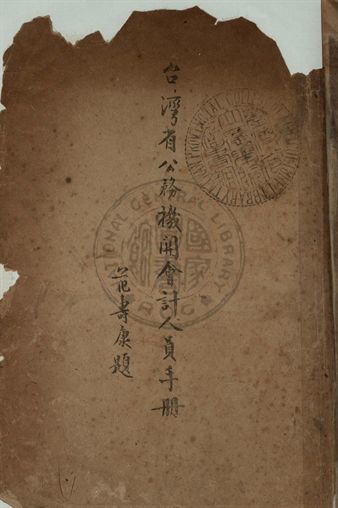 台灣省公務機関會計人員手册
范壽康題
NATIONAL CENTRAL LIBRARY
國家